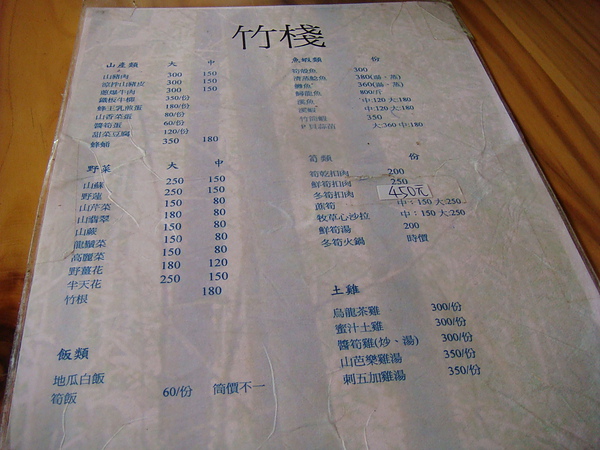 竹棧
山產類 大 中
山豬肉 300 150
涼拌山豬皮 300 150
蔥爆牛肉 300 150
鐵板牛柳 350/份
蜂王乳煎蛋 180/份
山香菜蛋 80/份
醬筍蛋 60/份
甜菜豆腐 120/份
蜂蛹 350 180
野菜 大 中
山蘇 250 150
野蓮 250 150
山芹菜 150 80
山翡翠 180 80
山蕨 150 80
龍鬚菜 150 80
高麗菜 150 80
野薑花 180 120
半天花 250 150
竹根 180
飯類
地瓜白飯
筍飯 60/份 筒價不一
魚蝦類 份
筍殼魚 300
清蒸鯰魚 380(湯、蒸)
鱒魚 360(湯、蒸)
鱘龍魚 800/斤
溪魚 中:120 大:180
溪蝦 中:120 大:180
竹筒蝦 350
大:360 中:180
筍類 份
筍乾扣肉 200
鮮筍扣肉 250
冬筍扣肉 450元
蘸筍 中:150 大:250
牧草心沙拉 中:150 大:250
鮮筍湯 200
冬筍火鍋 時價
土雞
烏龍茶雞 300/份
蜜汁土雞 300/份
醬筍雞(炒、湯) 300/份
山芭樂雞湯 350/份
刺五加雞湯 350/份